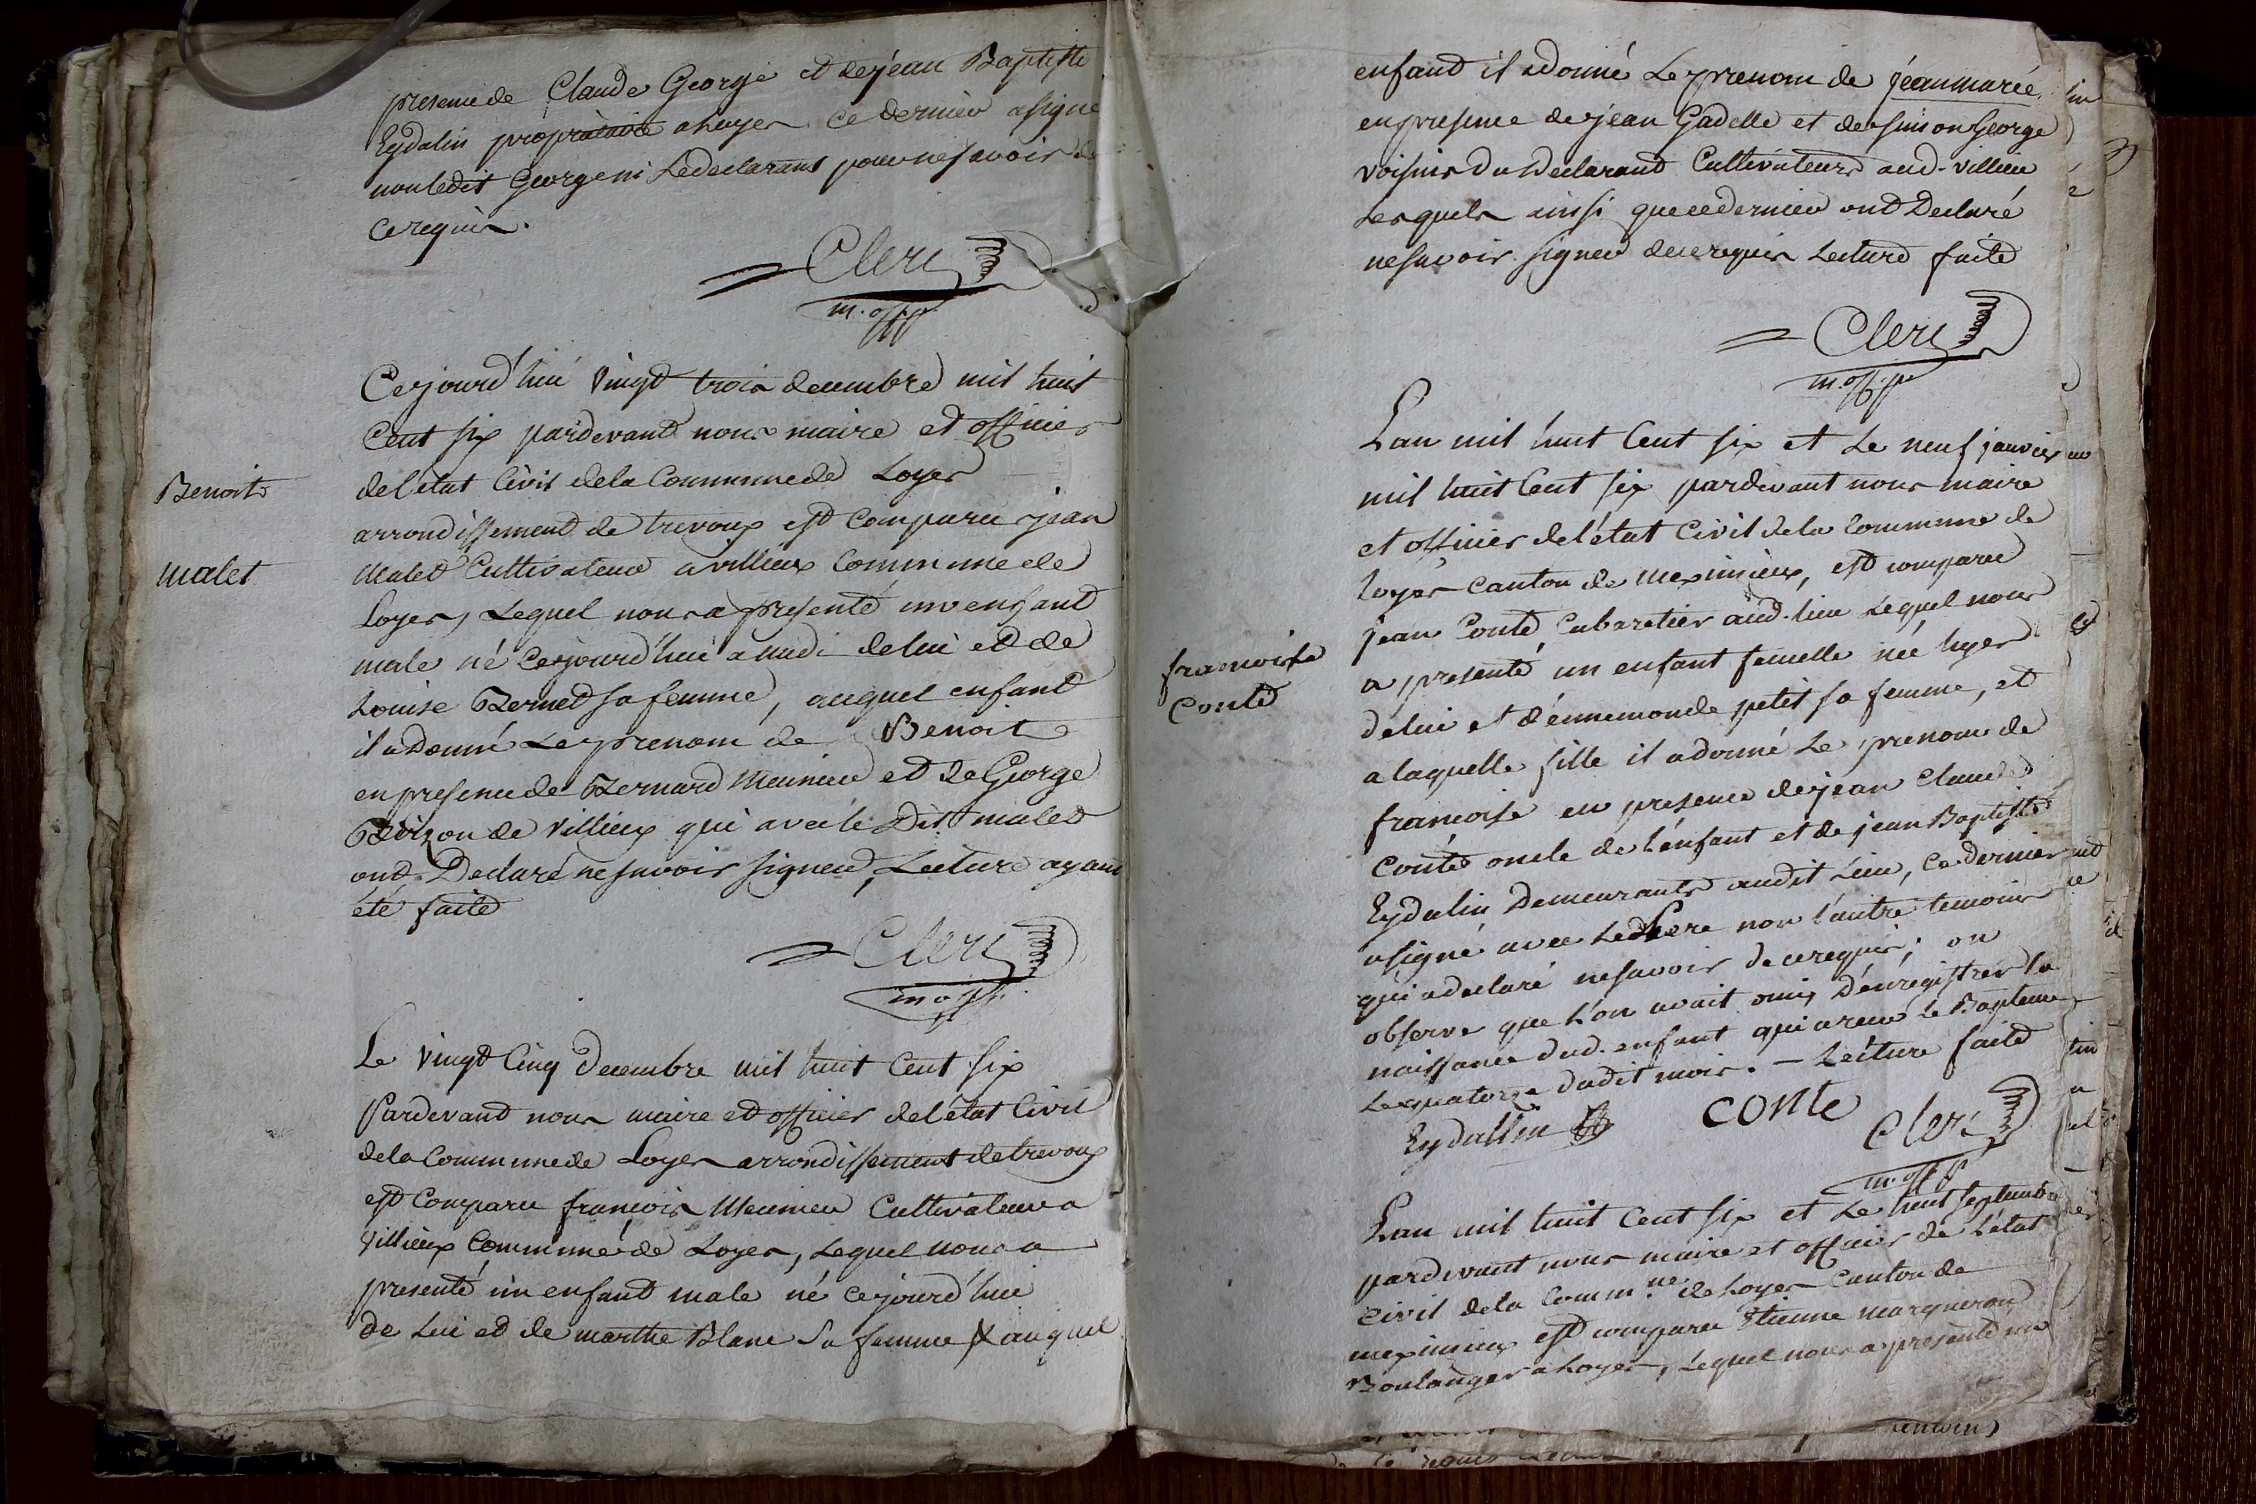 presence de Claude George et de jean Baptiste
Eydalin propriétaire a Loyes ce dernier a signé
non ledit George ni Le declarant pour ne savoir de
ce requis.
Clerc
m. off. p.
Cejourd'hui vingt trois decembre mil huit
Cent six pardevant nous maire et officier
de l'état Civil de la Commune de Loyes
Benoit
arrondissement de trevoux est Comparu jean
malet
Malet Cultivateur a villieux Commune de
Loyes, Lequel nous a presenté un enfant
male né Cejourd'hui a midi de lui et de
Louise Bernet sa femme, auquel enfant
il a Donné Le prenom de Benoit
en presence de Bernard Meunier et de George
de villieux qui avec le Dit malet
ont Declaré ne savoir signer, Lecture ayant
été faite
Clerc
m. off. p.
Le vingt Cinq decembre mil huit Cent six
Pardevant nous maire et officier de l'état Civil
de la Commune de Loyes arrondissement de trevoux
est Comparu françois Meunier Cultivateur a
villieux Commune de Loyes, Lequel nous a
presenté un enfant male né cejourd'hui
de Lui et de marthe Blanc sa femme auquel
enfant il a donné Le prenom de jean marie
en presence de jean Gadelle et de simon George
voisins du Declarant Cultivateurs aud. villieu
Lesquels ainsi que ce dernier ont Declaré
ne savoir signer de ce requis Lecture faite
Clerc
m. off. p.
L'an mil huit Cent six et Le neuf janvier
mil huit Cent six pardevant nous maire
et officier de l'état Civil de la Commune de
Loyes Canton de Meximieux, est comparu
jean Conte Cabaretier aud. lieu Lequel nous
francoise
Conte
a presenté un enfant femelle née hyer
de lui et d'ennemonde petit sa femme, et
a laquelle fille il a donné Le prenom de
francoise en presence de jean Claude
Conte oncle de L'enfant et de jean Baptiste
Eydalin Demeurants audit Lieu, Ce dernier
a signé avec Le Pere non l'autre temoin
qui a declaré ne savoir de ce requis; on
observe que L'on avait omis D'enregistrer la
naissance dud. enfant qui a recu le Bapteme
Le quatorze dudit mois. — Lecture faite
Eydallin Conte Clerc
m. off. p.
L'an mil huit Cent six et Le huit septembre
pardevant nous maire et officier de L'état
Civil de la Comm.ne de Loyes Canton de
meximieux est comparu Etienne margueron
Boulanger a Loyes, Lequel nous a presenté un